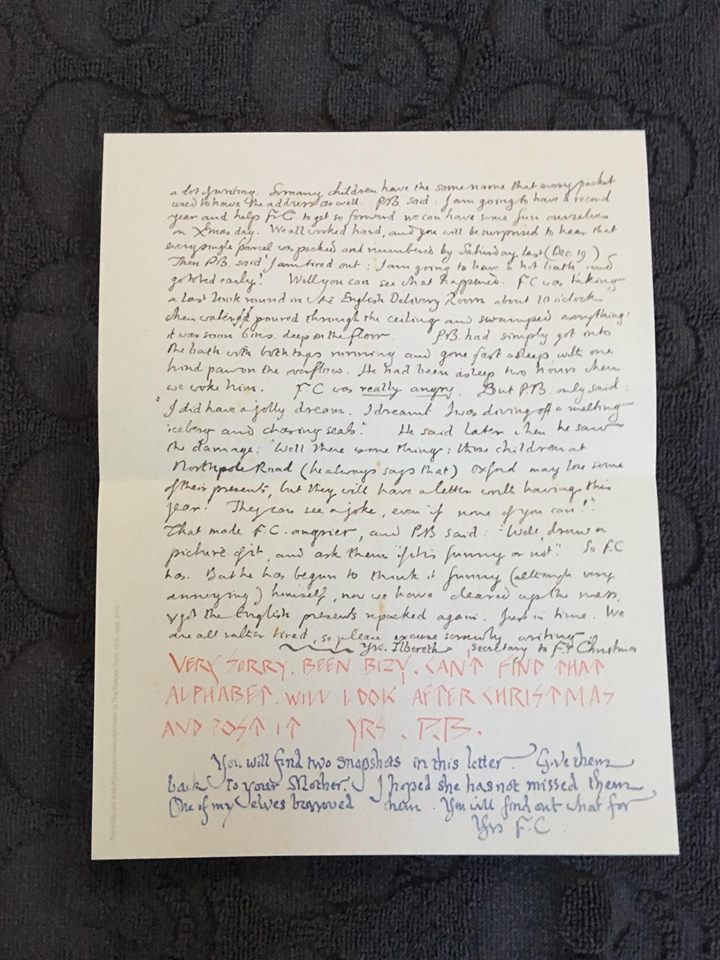 a lot of writing. So many children have the same name that every packet
used to have the address as well. P.B. said: I am going to have a record
year and help F.C. to get so forward we can have some fun ourselves
on Xmas day. We all worked hard, and you will be surprised to hear that
every single parcel was packed and numbered by Saturday last (Dec 19)
Then P.B. said 'I am tired out: I am going to have a hot bath, and
go to bed early!' Well you can see what happened. F.C was taking
a last look round in the English Delivery Room about 10 o'clock
when water poured through the ceiling and swamped everything:
it was soon 6 ins. deep on the floor. P.B. had simply got into
the bath with both taps running and gone fast asleep with one
hind paw on the overflow. He had been asleep two hours when
we woke him. F.C was really angry. But P.B. only said:
'I did have a jolly dream. I dreamt I was diving off a melting
iceberg and chasing seals.' He said later when he saw
the damage: 'Well there is one thing: those children at
Northpole Road (he always says that) Oxford may lose some
of their presents, but they will have a letter worth having this
year! They can see a joke, even if none of you can!'
That made F.C. angrier, and P.B said: 'Well, draw a
picture of it, and ask them if it is funny or not.' So F.C
has. But he has begun to think it funny (although very
annoying) himself, now we have cleared up the mess,
& got the English presents repacked again. Just in time. We
are all rather tired, so please excuse scrawly writing
Yrs. Ilbereth secretary to F. Christmas
VERY SORRY. BEEN BIZY. CAN'T FIND THAT
ALPHABET. WILL LOOK AFTER CHRISTMAS
AND POST IT YRS. P.B.
You will find two snapshots in this letter. Give them
back to your Mother. I hoped she has not missed them
One of my elves borrowed them. You will find out what for
Yrs F.C